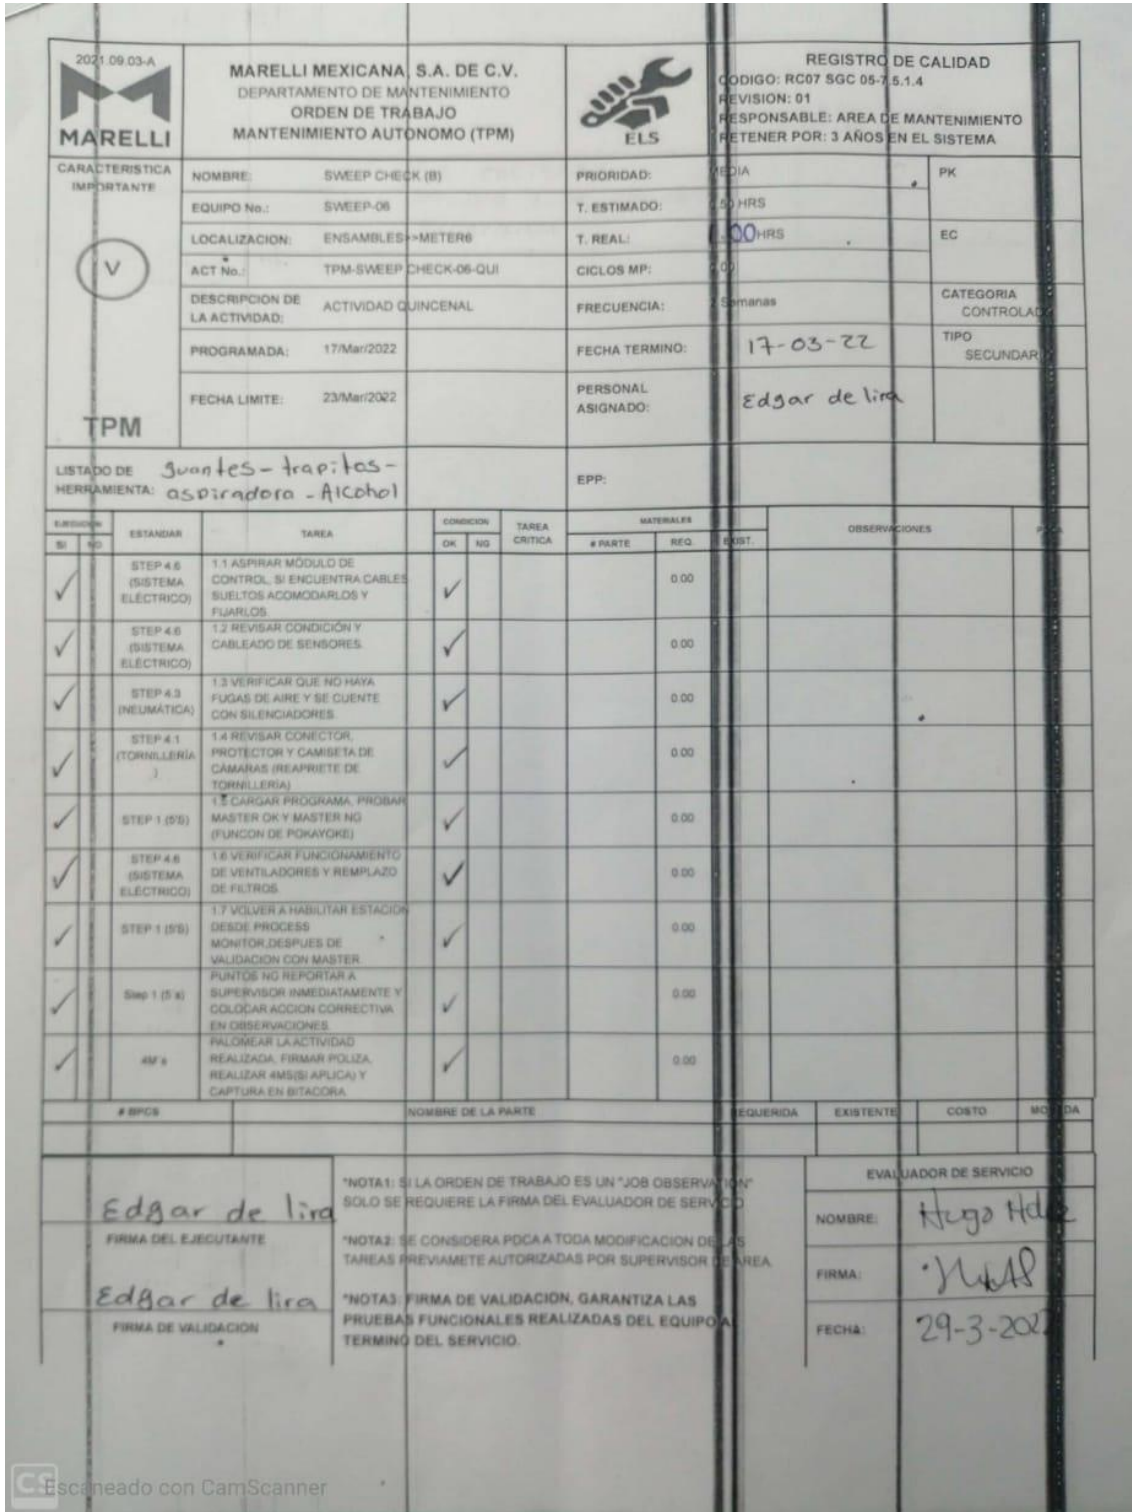 2021.09.03-A
MARELLI
MARELLI MEXICANA, S.A. DE C.V.
DEPARTAMENTO DE MANTENIMIENTO
ORDEN DE TRABAJO
MANTENIMIENTO AUTONOMO (TPM)
ELS
REGISTRO DE CALIDAD
CODIGO: RC07 SGC 05-7.5.1.4
REVISION: 01
RESPONSABLE: AREA DE MANTENIMIENTO
RETENER POR: 3 AÑOS EN EL SISTEMA
CARACTERISTICA
IMPORTANTE
V
TPM
NOMBRE: SWEEP CHECK (B)
PRIORIDAD: MEDIA
PK
EQUIPO No.: SWEEP-06
T. ESTIMADO: .50 HRS
LOCALIZACION: ENSAMBLES>>METER6
T. REAL: 1.00 HRS
EC
ACT No.: TPM-SWEEP CHECK-06-QUI
CICLOS MP: .00
DESCRIPCION DE
LA ACTIVIDAD: ACTIVIDAD QUINCENAL
FRECUENCIA: 2 Semanas
CATEGORIA
CONTROLADO
PROGRAMADA: 17/Mar/2022
FECHA TERMINO: 17-03-22
TIPO
SECUNDAR
FECHA LIMITE: 23/Mar/2022
PERSONAL
ASIGNADO: Edgar de lira
LISTADO DE
HERRAMIENTA: guantes - trapitos -
aspiradora - Alcohol
EPP:
EJECUCION ESTANDAR TAREA CONDICION TAREA
CRITICA MATERIALES OBSERVACIONES
SI NO OK NG # PARTE REQ. EXIST.
STEP 4.6
(SISTEMA
ELÉCTRICO)
1.1 ASPIRAR MÓDULO DE
CONTROL, SI ENCUENTRA CABLES
SUELTOS ACOMODARLOS Y
FIJARLOS.
0.00
STEP 4.6
(SISTEMA
ELÉCTRICO)
1.2 REVISAR CONDICIÓN Y
CABLEADO DE SENSORES.
0.00
STEP 4.3
(NEUMÁTICA)
1.3 VERIFICAR QUE NO HAYA
FUGAS DE AIRE Y SE CUENTE
CON SILENCIADORES
0.00
STEP 4.1
(TORNILLERÍA
)
1.4 REVISAR CONECTOR,
PROTECTOR Y CAMISETA DE
CÁMARAS (REAPRIETE DE
TORNILLERÍA)
0.00
STEP 1 (5'S)
1.5 CARGAR PROGRAMA, PROBAR
MASTER OK Y MASTER NG
(FUNCON DE POKAYOKE)
0.00
STEP 4.6
(SISTEMA
ELÉCTRICO)
1.6 VERIFICAR FUNCIONAMIENTO
DE VENTILADORES Y REMPLAZO
DE FILTROS
0.00
STEP 1 (5'S)
1.7 VOLVER A HABILITAR ESTACION
DESDE PROCESS
MONITOR,DESPUES DE
VALIDACION CON MASTER
0.00
Step 1 (5´s)
PUNTOS NG REPORTAR A
SUPERVISOR INMEDIATAMENTE Y
COLOCAR ACCION CORRECTIVA
EN OBSERVACIONES.
0.00
4M´s
PALOMEAR LA ACTIVIDAD
REALIZADA, FIRMAR POLIZA,
REALIZAR 4MS(SI APLICA) Y
CAPTURA EN BITACORA
0.00
# BPCS NOMBRE DE LA PARTE REQUERIDA EXISTENTE COSTO MONEDA
Edgar de lira
FIRMA DEL EJECUTANTE
Edgar de lira
FIRMA DE VALIDACION
*NOTA1: SI LA ORDEN DE TRABAJO ES UN "JOB OBSERVATION"
SOLO SE REQUIERE LA FIRMA DEL EVALUADOR DE SERVICIO
*NOTA2: SE CONSIDERA PDCA A TODA MODIFICACION DE LAS
TAREAS PREVIAMETE AUTORIZADAS POR SUPERVISOR DE AREA.
*NOTA3: FIRMA DE VALIDACION, GARANTIZA LAS
PRUEBAS FUNCIONALES REALIZADAS DEL EQUIPO A
TERMINO DEL SERVICIO.
EVALUADOR DE SERVICIO
NOMBRE: Hugo Hdez
FIRMA:
FECHA: 29-3-2022
CS Escaneado con CamScanner